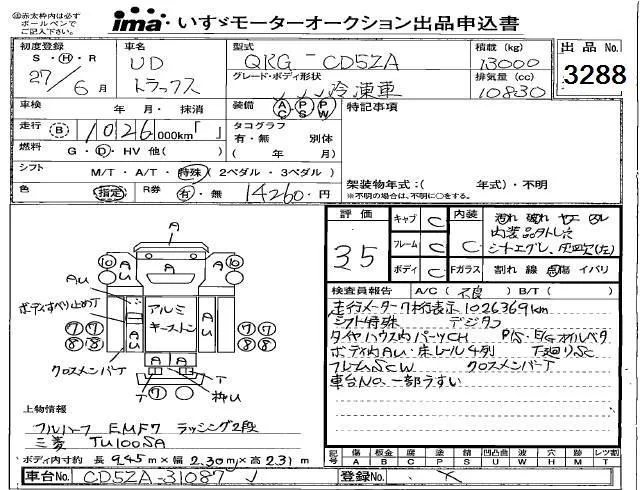 ※赤太枠内は必ず
ボールペンで
ご記入下さい。
ima いすゞモーターオークション出品申込書
初度登録 車名 型式 積載 (kg) 出品 No.
S・H・R UD QKG－CD5ZA 13000 3288
27/6月 トラックス グレード・ボディ形状 排気量 (cc)
冷凍車 10830
車検 年・月・抹消 装備 AC PS PW 特記事項
走行 B 1026 000km「 」 タコグラフ
有・無 別体
燃料 G・D・HV 他( ) ( 年 月)
シフト M/T・A/T・特殊 (2ペダル・3ペダル)
架装物年式：( 年式)・不明
色 指定 R券 有・無 14260・円 ※不明の場合は、不明に○をする。
評価 キャブ C 内装 汚れ 破れ ヤニ
35 フレーム C C 内装品タトレ穴
シートエグレ、灰皿欠(左)
ボディ C Fガラス 割れ 線 点傷 イバリ
A
A
10 A A 10
AU
ボディすべり止め
アルミ
キーストン
AU
A
7 7 7 7
8 8 8 8
クロスメンバーT
T
T
枠U
T 7
検査員報告 A/C( 不良 ) B/T( )
走行メーター7桁表示 1026369km
シフト特殊 デジタコ
タイヤハウス内パーツCH P/S・E/Gオイルベタ
ボディ内AU・床レール4列 下廻りSC
フレームSCW クロスメンバーT
車台No.一部うすい
上物情報
フルハーフ EMF7 ラッシング2段
三菱 TU100SA
ボディ内寸約 長 9.45m×幅 2.30m×高 2.31m
記号 キズ 板金 腐 塗 錆 凹凸曲 波 穴 歪 レツ割
A B C P S U W H M T
車台No. CD5ZA-31087 登録No.